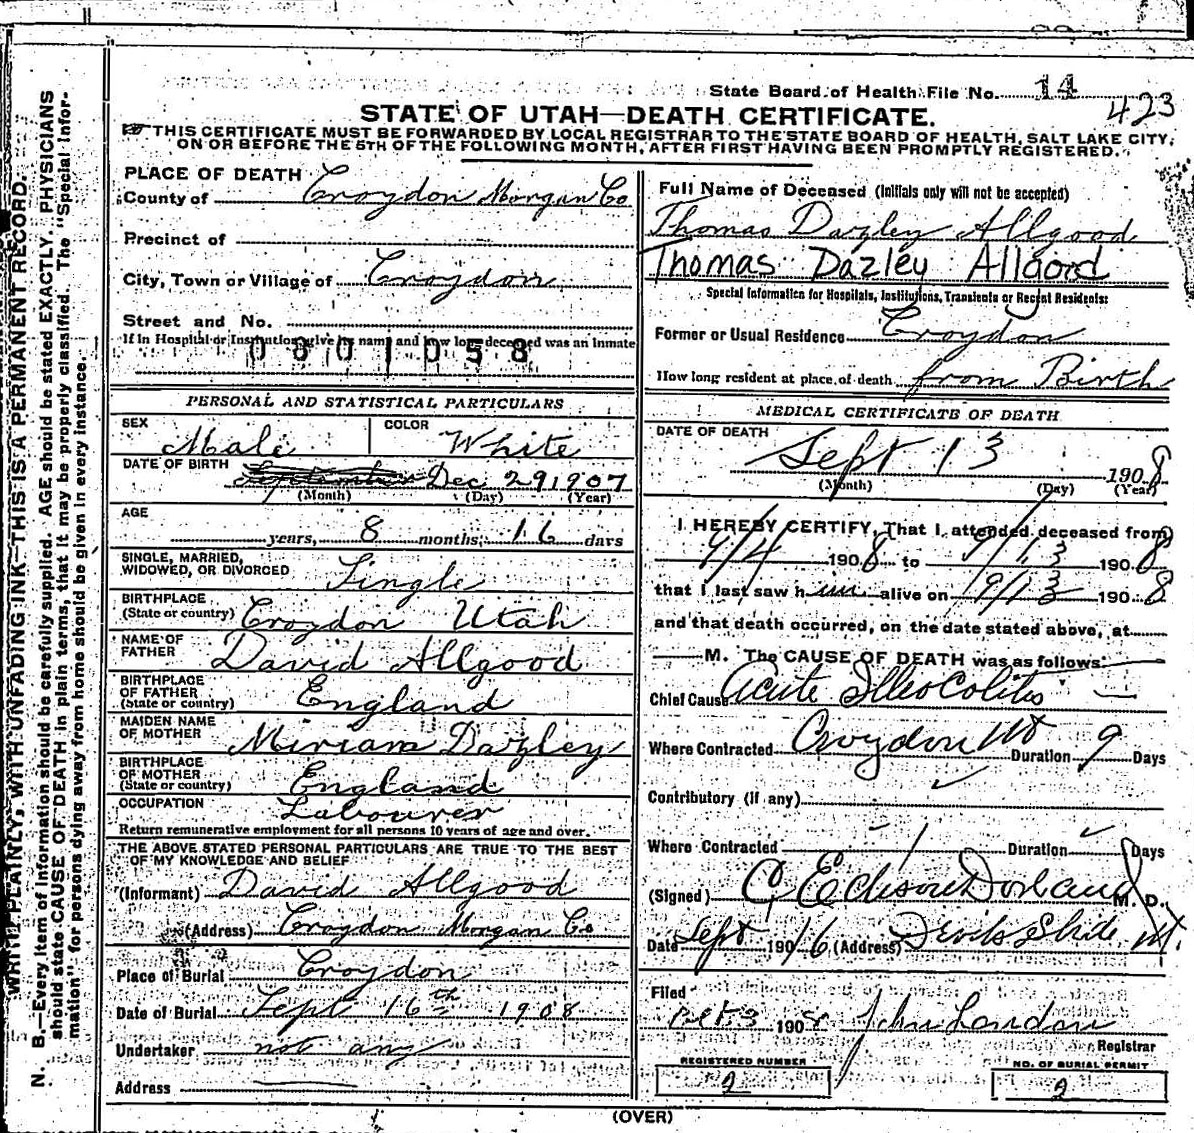 State Board of Health File No. 14
423
STATE OF UTAH—DEATH CERTIFICATE.
THIS CERTIFICATE MUST BE FORWARDED BY LOCAL REGISTRAR TO THE STATE BOARD OF HEALTH, SALT LAKE CITY,
ON OR BEFORE THE 5TH OF THE FOLLOWING MONTH, AFTER FIRST HAVING BEEN PROMPTLY REGISTERED.
WRITE PLAINLY, WITH UNFADING INK—THIS IS A PERMANENT RECORD.
N. B.—Every item of information should be carefully supplied. AGE should be stated EXACTLY. PHYSICIANS
should state CAUSE OF DEATH in plain terms, that it may be properly classified. The "Special Infor-
mation" for persons dying away from home should be given in every instance.
PLACE OF DEATH
County of Croydon Morgan Co
Precinct of
City, Town or Village of Croydon
Street and No.
If in Hospital or Institution give its name and how long deceased was an inmate
0801058
PERSONAL AND STATISTICAL PARTICULARS
SEX Male COLOR White
DATE OF BIRTH September Dec 29, 1907
(Month) (Day) (Year)
AGE years, 8 months, 16 days
SINGLE, MARRIED,
WIDOWED, OR DIVORCED Single
BIRTHPLACE
(State or country) Croydon Utah
NAME OF
FATHER David Allgood
BIRTHPLACE
OF FATHER
(State or country) England
MAIDEN NAME
OF MOTHER Miriam Dazley
BIRTHPLACE
OF MOTHER
(State or country) England
OCCUPATION Labourer
Return remunerative employment for all persons 10 years of age and over.
THE ABOVE STATED PERSONAL PARTICULARS ARE TRUE TO THE BEST
OF MY KNOWLEDGE AND BELIEF
(Informant) David Allgood
(Address) Croydon Morgan Co
Place of Burial Croydon
Date of Burial Sept 16th 1908
Undertaker not any
Address
Full Name of Deceased (Initials only will not be accepted)
Thomas Dazley Allgood
Thomas Dazley Allgood
Special Information for Hospitals, Institutions, Transients or Recent Residents:
Former or Usual Residence Croydon
How long resident at place of death from Birth
MEDICAL CERTIFICATE OF DEATH
DATE OF DEATH
Sept 13 1908
(Month) (Day) (Year)
I HEREBY CERTIFY, That I attended deceased from
9/4 1908 to 9/13 1908
that I last saw him alive on 9/13 1908
and that death occurred, on the date stated above, at
M. The CAUSE OF DEATH was as follows:
Chief Cause Acute Illeocolitis
Where Contracted Croydon Ut Duration 9 Days
Contributory (if any)
Where Contracted Duration Days
(Signed) C Edison Dorland M. D.
Date Sept 190 16 (Address) Devils Slide Ut.
Filed
Oct. 3 1908 John London
Registrar
REGISTERED NUMBER
2
NO. OF BURIAL PERMIT
2
(OVER)